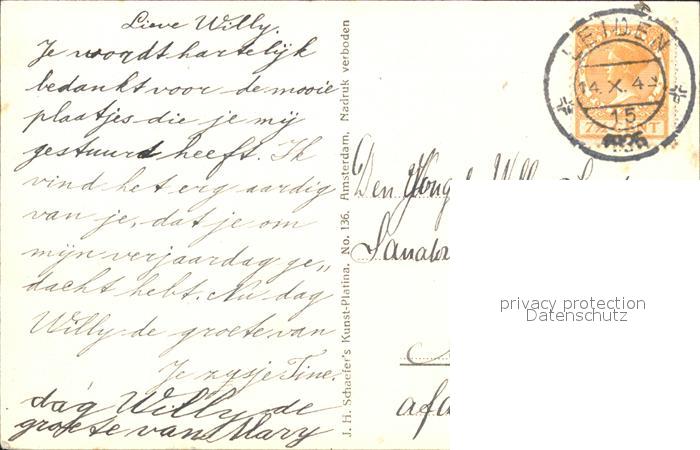 Lieve Willy.
Je wordt hartelijk
bedankt voor de mooie
plaatjes die je mij
gestuurd heeft. Ik
vind het erg aardig
van je, dat je om
mijn verjaardag ge„
dacht hebt. Nu dag
Willy de groete van
Je zusje Tine.
dag Willy de
groete van Mary
J. H. Schaefer's Kunst-Platina. No. 136. Amsterdam. Nadruk verboden
LEIDEN
14.X.4
15
CENT
Den
afd
privacy protection
Datenschutz